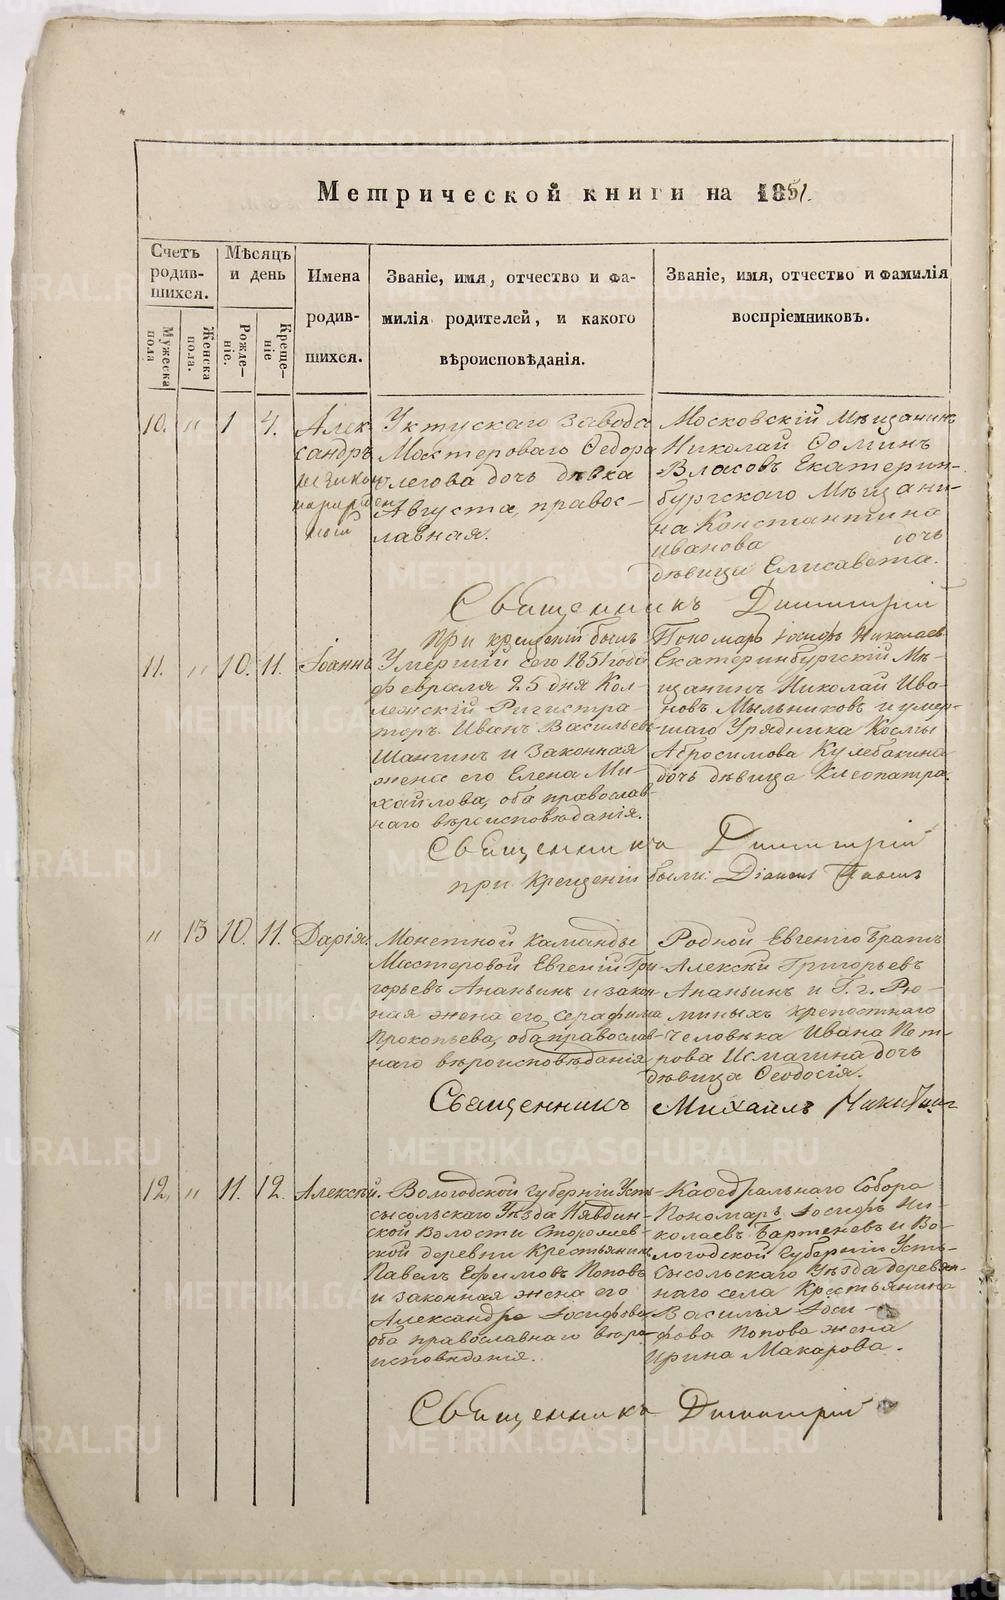 Метрической книги на 1851.
Счетъ родив-шихся.
Мѣсяцъ и день
Имена родив-шихся.
Званіе, имя, отчество и фа-
милія родителей, и какого
вѣроисповѣданія.
Званіе, имя, отчество и фамилія
воспріемниковъ.
Мужеска пола
Женска пола.
Рожде-ніе.
Креще-ніе
10. " 1 4. Алек-
сандръ
незакон
норожден
ный
Уктускаго завода
Мастероваго Ѳедора
дочь дѣвка
Августа, правос-
лавная.
Московскій Мѣщанинъ
Николай Ѳоминъ
Власовъ Екатерин-
бургскаго Мѣщани-
на Константина
Иванова дочь
дѣвица Елисавета.
Священникъ Димитрій
При крещеніи былъ Пономарь Іосифъ Николаевъ
11. " 10. 11. Іоаннъ
Умершій сего 1851 года
февраля 25 дня Кол-
лежскій Регистра-
торъ Иванъ Васильевъ
Шангинъ и законная
жена его Елена Ми-
хайлова, оба православ-
наго вѣроисповѣданія.
Екатеринбургскій Мѣ-
щанинъ Николай Ива-
новъ Мыльниковъ и умер-
шаго Урядника Космы
Абросимова Кулебакина
дочь дѣвица Клеопатра.
Священникъ Димитрій
при крещеніи были:
" 13 10. 11. Дарія.
Монетной Команды
Мастеровой Евгеній Гри-
горьевъ Ананьинъ и закон-
ная жена его Серафима
Прокопьева, оба православ-
наго вѣроисповѣданія
Родной Евгенію братъ
Алексѣй Григорьевъ
Ананьинъ и Г. г. Рю-
миныхъ крепостнаго
человѣка Ивана Пет-
рова Исмагина дочь
дѣвица Ѳеодосія.
Священникъ Михаилъ
12. " 11. 12. Алексѣй.
Вологодской Губерніи Усть-
сысольскаго Уѣзда
ской Волости
ской деревни Крестьянинъ
Павелъ Ефимовъ Поповъ
и законная жена его
Александра Іосифова
оба православнаго вѣро-
исповѣданія.
Каѳедральнаго Собора
Пономарь Іосифъ Ни-
колаевъ Бартеневъ и Во-
логодской Губерніи Усть-
Сысольскаго Уѣзда деревян-
наго села Крестьянина
Василья Іоси-
фова Попова жена
Ирина Макарова.
Священникъ Димитрій
METRIKI.GASO-URAL.RU